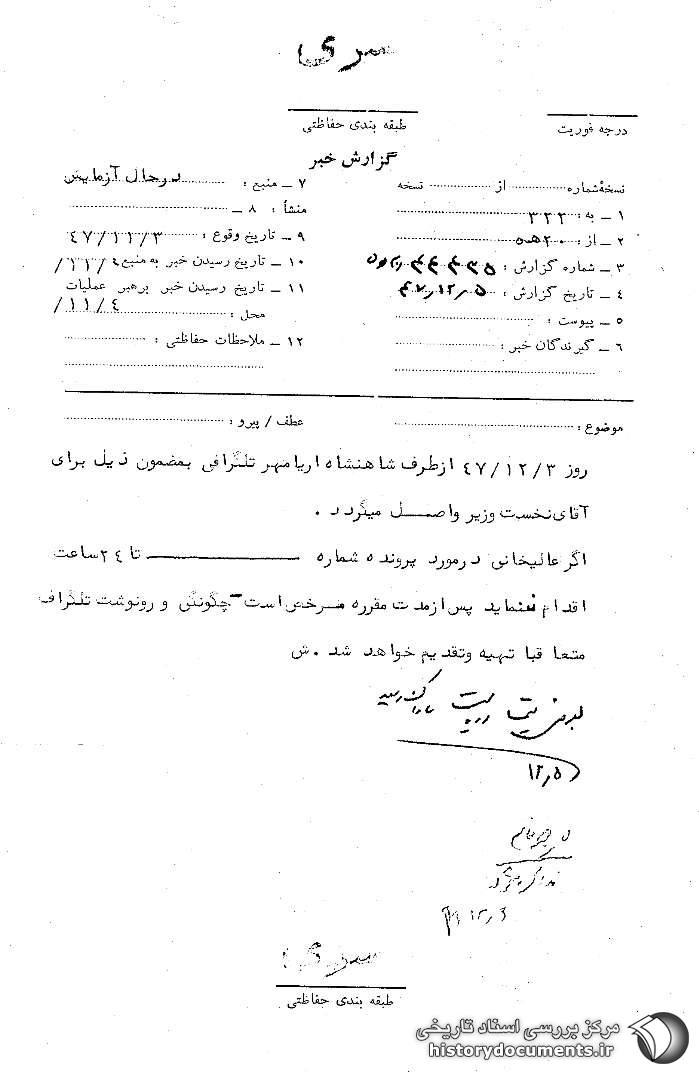 سری
درجه فوریت
طبقه بندی حفاظتی
گزارش خبر
نسخهٔ شماره ........ از ........ نسخه
۱ ـ به : ۳۲۲
۲ ـ از : ۲۰ ه‍ ۵
۳ ـ شماره گزارش :
۴ ـ تاریخ گزارش : ۴۷/۱۲/۵
۵ ـ پیوست :
۶ ـ گیرندگان خبر :
۷ ـ منبع : درحال آزمایش
۸ ـ منشأ :
۹ ـ تاریخ وقوع : ۴۷/۱۱/۳
۱۰ ـ تاریخ رسیدن خبر به منبع ۱۱/۴/
۱۱ ـ تاریخ رسیدن خبر برهبر عملیات
محل : ۱۱/۴/
۱۲ ـ ملاحظات حفاظتی :
موضوع :
عطف / پیرو :
روز ۴۷/۱۲/۳ ازطرف شاهنشاه اریامهر تلگرافی بمضمون ذیل برای
آقای نخست وزیر واصل میگردد .
اگر عالیخانی درمورد پرونده شماره ــــــــــ تا ۲۴ ساعت
اقدام ننماید پس ازمدت مقرره مرخص است ـ چگونگی و رونوشت تلگراف
متعاقبا تهیه وتقدیم خواهد شد . ش
۱۲/۵
سری
طبقه بندی حفاظتی
مرکز بررسی اسناد تاریخی
historydocuments.ir